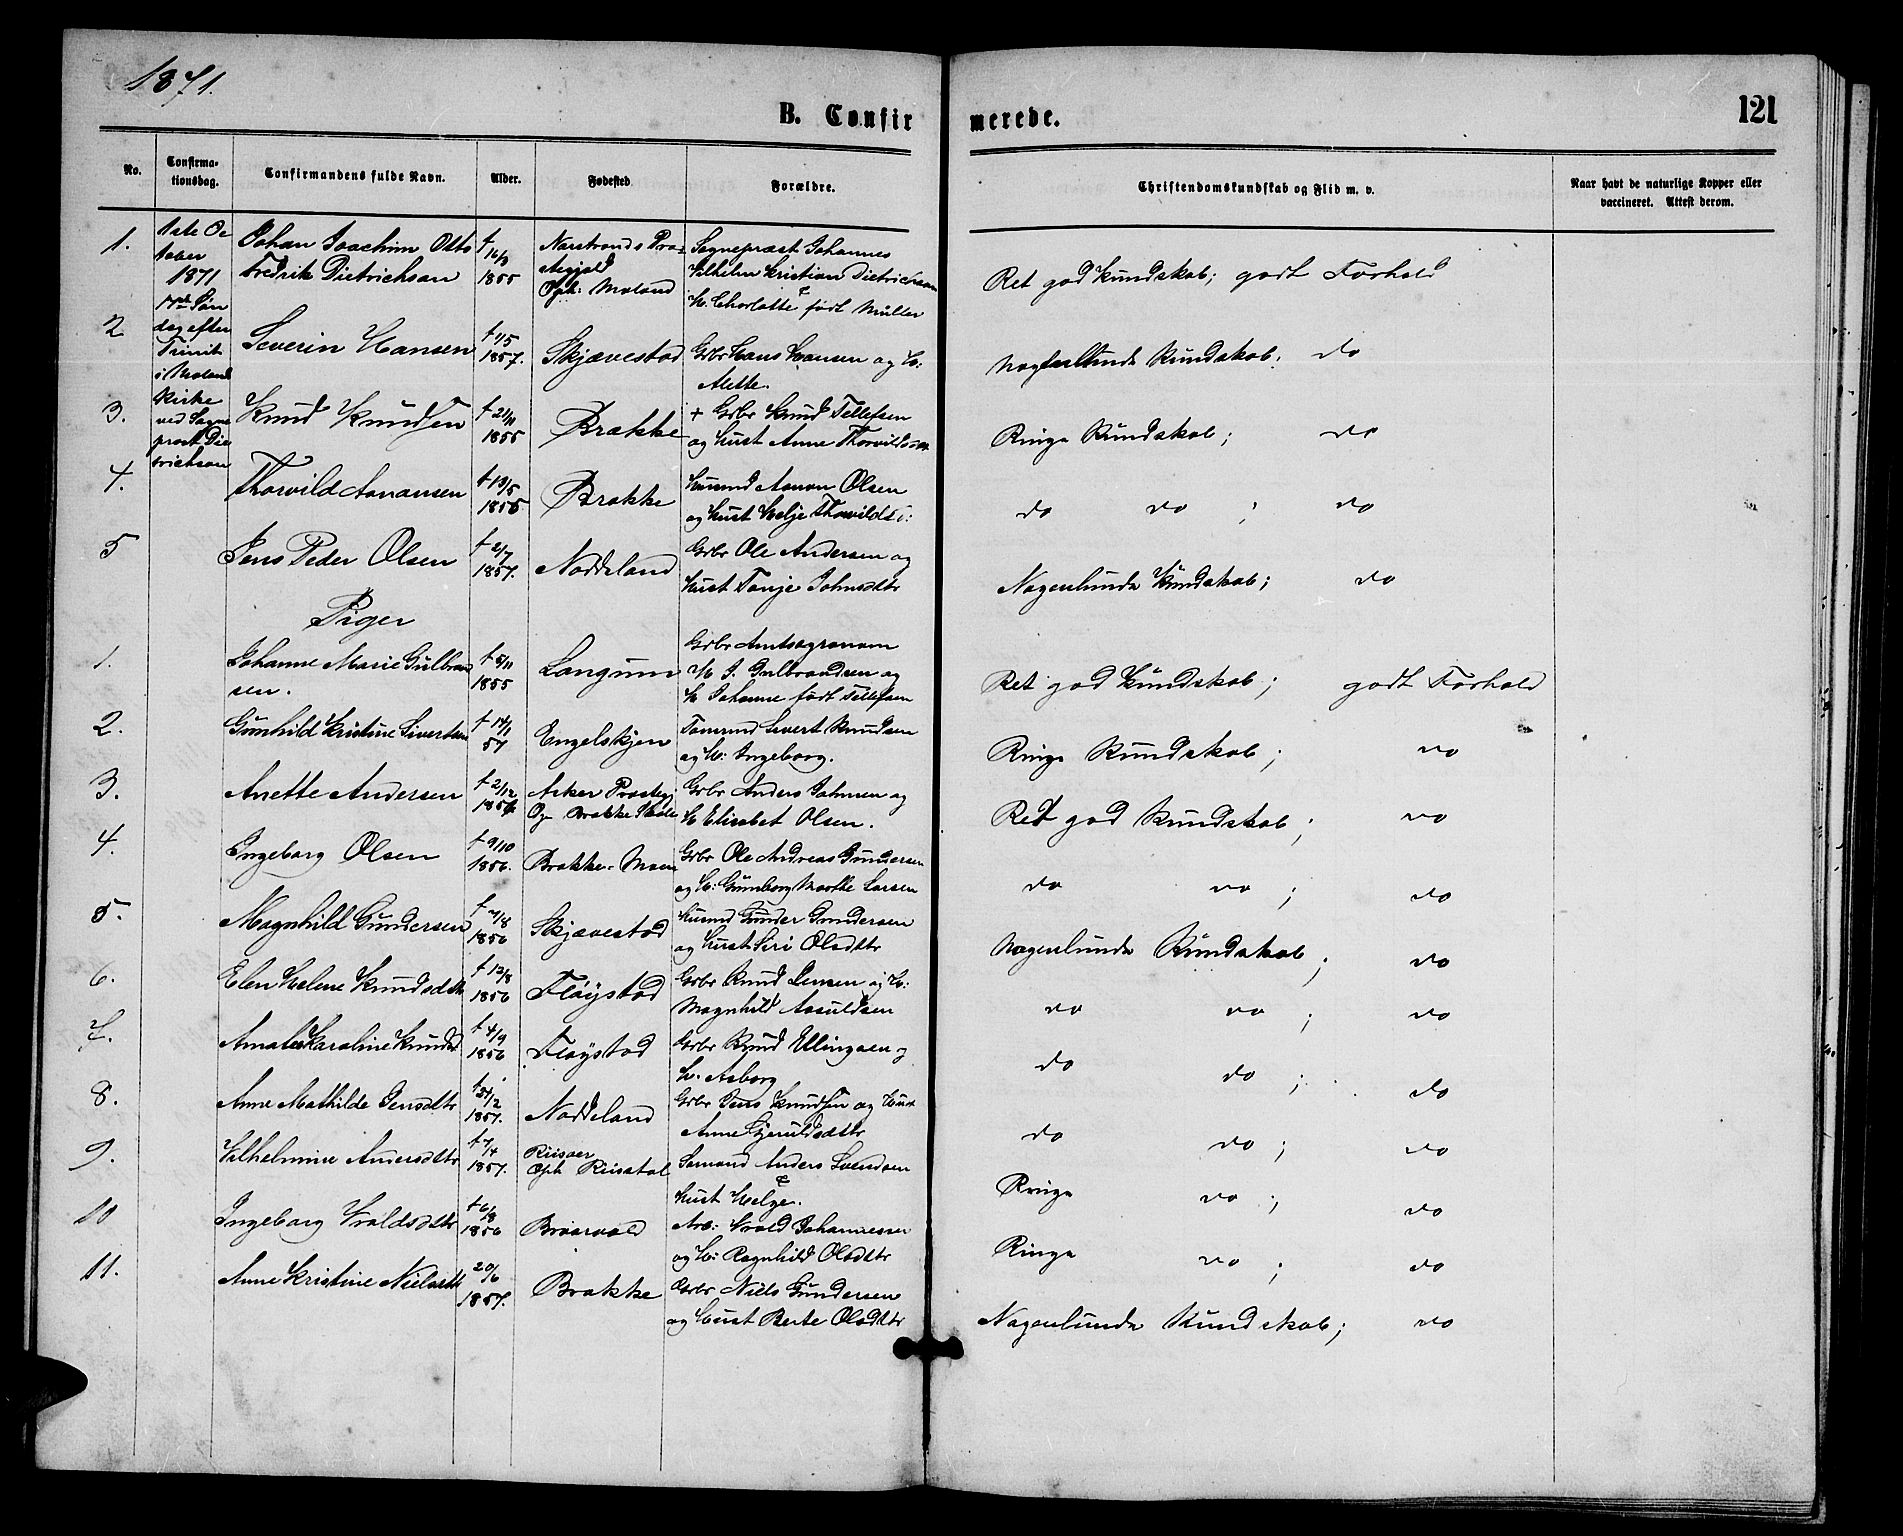 1871.
B. Confirmerede.
121
No.
Confirma-
tionsdag.
Confirmandens fulde Navn.
Alder.
Fødested
Forældre.
Christendomskundskab og Flid m. v.
Naar havt de naturlige Kopper eller
vaccineret. Attest derom.
1ste Oc
tober
1871
17de Søn
dag efter
Trinit
i Moland
Kirke
ved Sogne
præst Die
trichson
1. Johan Joachim Otto
Fredrik Dietrichson
1855
Præ-
stegjeld
Oph: Moland
Sognepræst Johannes
Vilhelm Kristian Dietrichson
& H. Charlotte født Müller
Ret god Kundskab; godt Forhold
2 Severin Hansen
1/5
1857.
Skjævestad
Grbr Hans Hansen og H:
Alette.
Nogenlunde Kundskab; do
3. Knud Knudsen
21/11
1855
Brække
+ Grbr Knud Tellefsen
og Hust Anne Thorvildsdatt
Ringe Kundskab; do
4. Thorvild Aanonsen
13/5
1856
Brække
Husmd Aanon Olsen
og Hust Helje Thorvildsd:
do do ; do
5 Jens Peder Olsen
2/7
1857.
Noddeland
Grbr Ole Andersen og
Hust Tonje Johnsdtr
Nogenlunde Kundskab; do
Piger
1. Johanne Marie Gulbrand
sen.
5/11
1855
Langum
Grbr Amtsagronom
H. J. Gulbrandsen og
H Johanne født Tellefsen
Ret god Kundskab; godt Forhold
2. Gunhild Kristine Sivertsen
57
Engelskjøn
Tømmd Sivert Knudsen
og H: Ingeborg.
Ringe Kundskab; do
3. Anette Andersen
2/12
Asker Præstegj
Op Brække Skole
Grbr Anders Johnsen og
H Elisabet Olsen.
Ret god Kundskab; do
4. Ingeborg Olsen
9/10
1856.
Brække-Moen
Grbr Ole Andreas Gundersen
og H: Gunborg Marthe Larsen
do do ; do
5. Magnhild Gundersen
1856
Skjævestad
Husmd Gunder Gundersen
og Hust Siri Olsdtr
Nogenlunde Kundskab; do
6. Elen Helene Knudsdtr
12/8
1856
Fløystad
Grbr Knud Jensen og H:
Magnhild Aasuldsen
do do ; do
7. Amalie Karoline Knudsd
4/9
1856
Fløystad
Grbr Knud Ellingsen og
H. Asborg
do do ; do
8. Anne Mathilde Jensdtr
1857.
Noddeland
Grbr Jens Knudsen og Hust
Anne Gjeruldsdtr
do do ; do
9. Vilhelmine Andersdtr
7/4
1857.
Riisøer
Oph Riisdal
Sømand Anders Svendsen
& Hust Helge.
Ringe do ; do
10 Ingeborg Vroldsdtr
6/8
1856
Braarvold
Arb: Vrold Johannessen
og H: Ragnhild Olsdtr
Ringe do ; do
11. Anne Kristine Nielsdtr
20/6
1857.
Brække
Grbr Niels Gundersen
og Hust Berte Olsdtr
Nogenlunde Kundskab; do